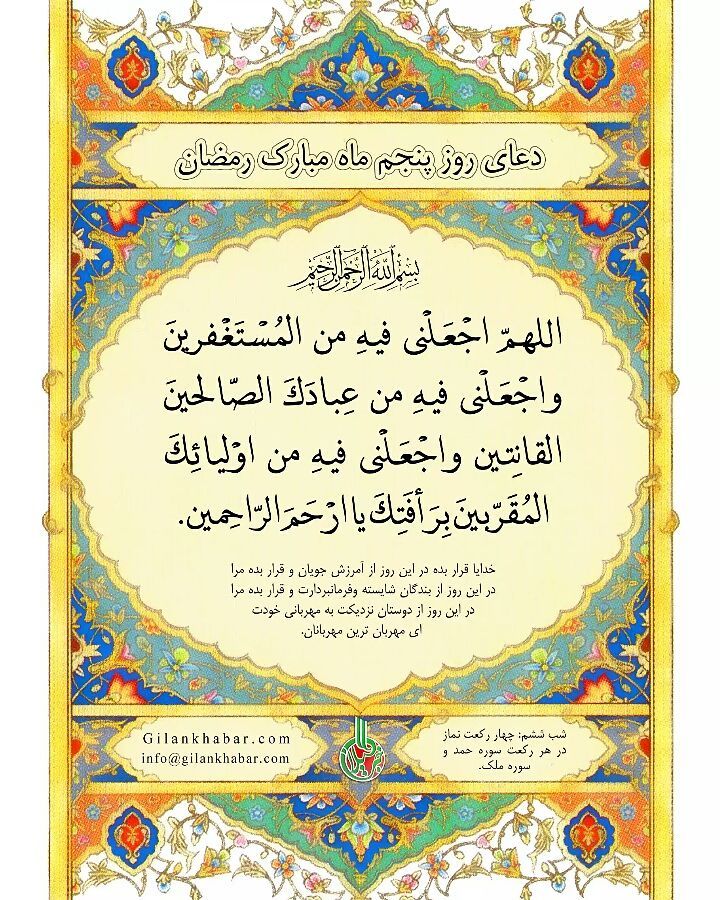 دعای روز پنجم ماه مبارک رمضان
بِسْمِ اللَّهِ الرَّحْمَنِ الرَّحِيمِ
اللهمّ اجْعَلْنی فیهِ من المُسْتَغْفرینَ
واجْعَلْنی فیهِ من عِبادَكَ الصّالحینَ
القانِتین واجْعَلْنی فیهِ من اوْلیائِكَ
المُقَرّبینَ بِرَأفَتِكَ یا ارْحَمَ الرّاحِمین.
خدایا قرار بده در این روز از آمرزش جویان و قرار بده مرا
در این روز از بندگان شایسته وفرمانبردارت و قرار بده مرا
در این روز از دوستان نزدیکت به مهربانی خودت
ای مهربان ترین مهربانان.
شب ششم: چهار رکعت نماز
در هر رکعت سوره حمد و
سوره ملک.
Gilankhabar.com
info@gilankhabar.com